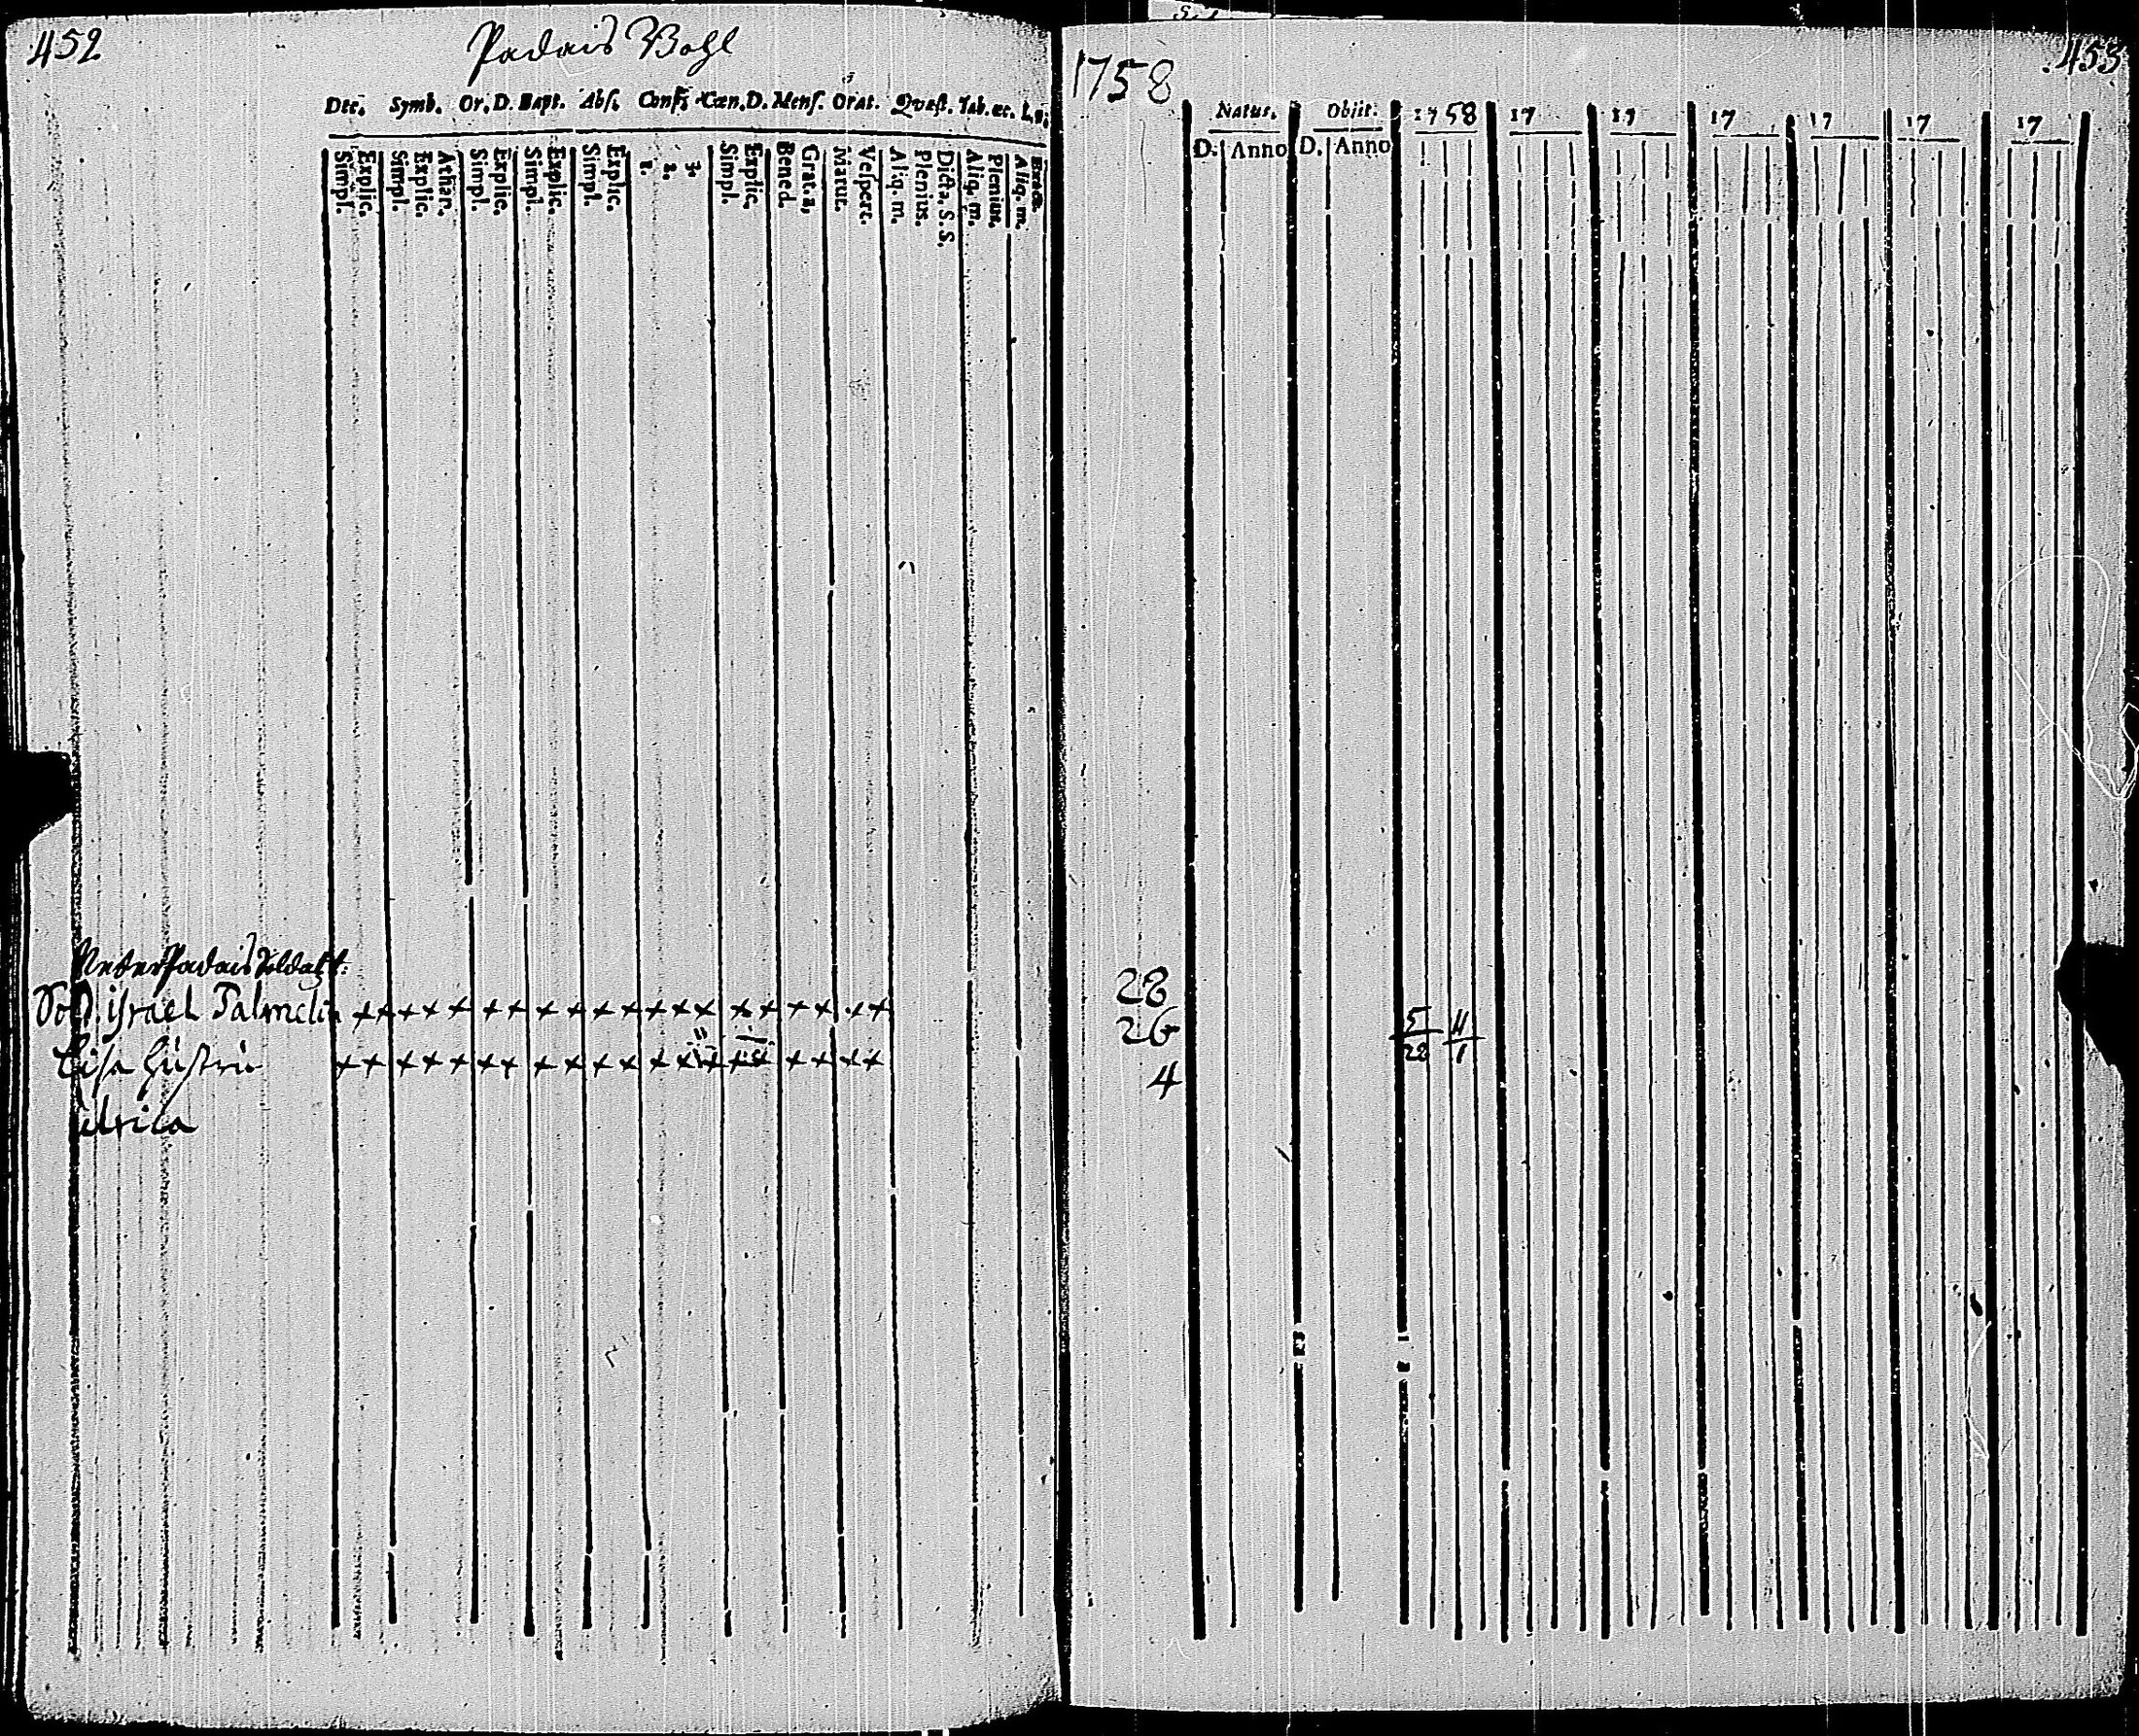 452
Padais Bohl
Dec. Symb. Or. D. Bapt. Abs. Conf. Cœn. D. Mens. Orat. Qvæst. Tab. œc. L. s.
Simpl. Explic. Simpl. Explic. Athan. Simpl. Explic. Simpl. Explic. Simpl. Explic. 1. 2. 3. Simpl. Explic. Bened. Grat. a. Matut. Vespert. Aliq. m. Plenius. Dicta. S. S. Aliq. m. Plenius. Aliq. m. Exact.
Padais Soldatt:
Sold. Israel Palmelin x x x x x x x x x x x x x x x x x x x x
Lisa Hustru x x x x x x x x x x x x x x x x x x
Ulrica
1758
453
Natus. Obiit. 1758 17 17 17 17 17 17
D. Anno D. Anno
28
26 5/28 11/1
4